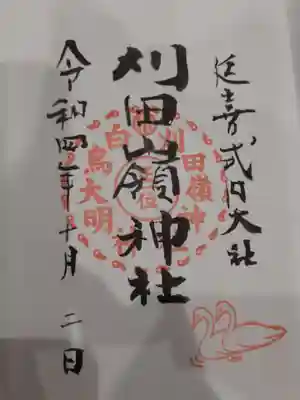 延喜式内大社
刈田嶺神社
令和四年十月二日
刈田嶺神
白鳥大明